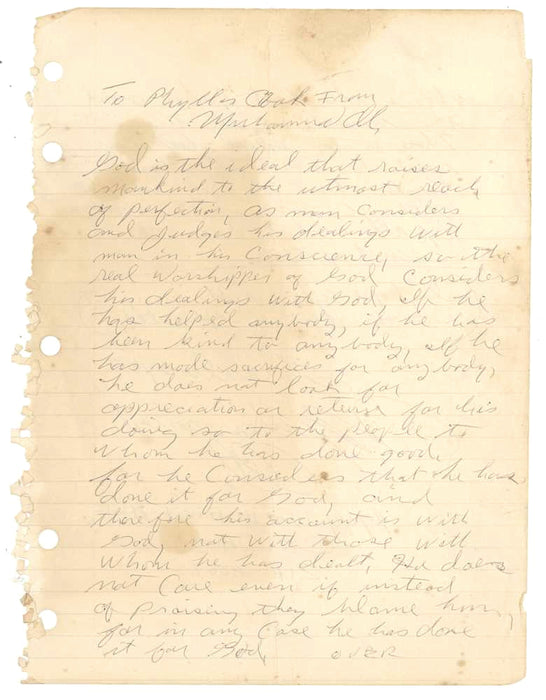 To Phyllis From
Muhammad Ali
God is the ideal that raises
mankind to the utmost reach
of perfection, as man Considers
and Judges his dealings with
man in his Conscience, so the
real Worshipper of God Considers
his dealings with God, If he
has helped anybody, if he has
been kind to anybody, If he
has made sacrifices for anybody,
he does not look for
appreciation or return for his
doing so to the people to
whom he has done good,
for he Considers that he has
done it for God, and
therefore his account is with
God, not with those with
whom he has dealt, He does
not Care even if instead
of Praising they blame him,
for in any Case he has done
it for God, OVER